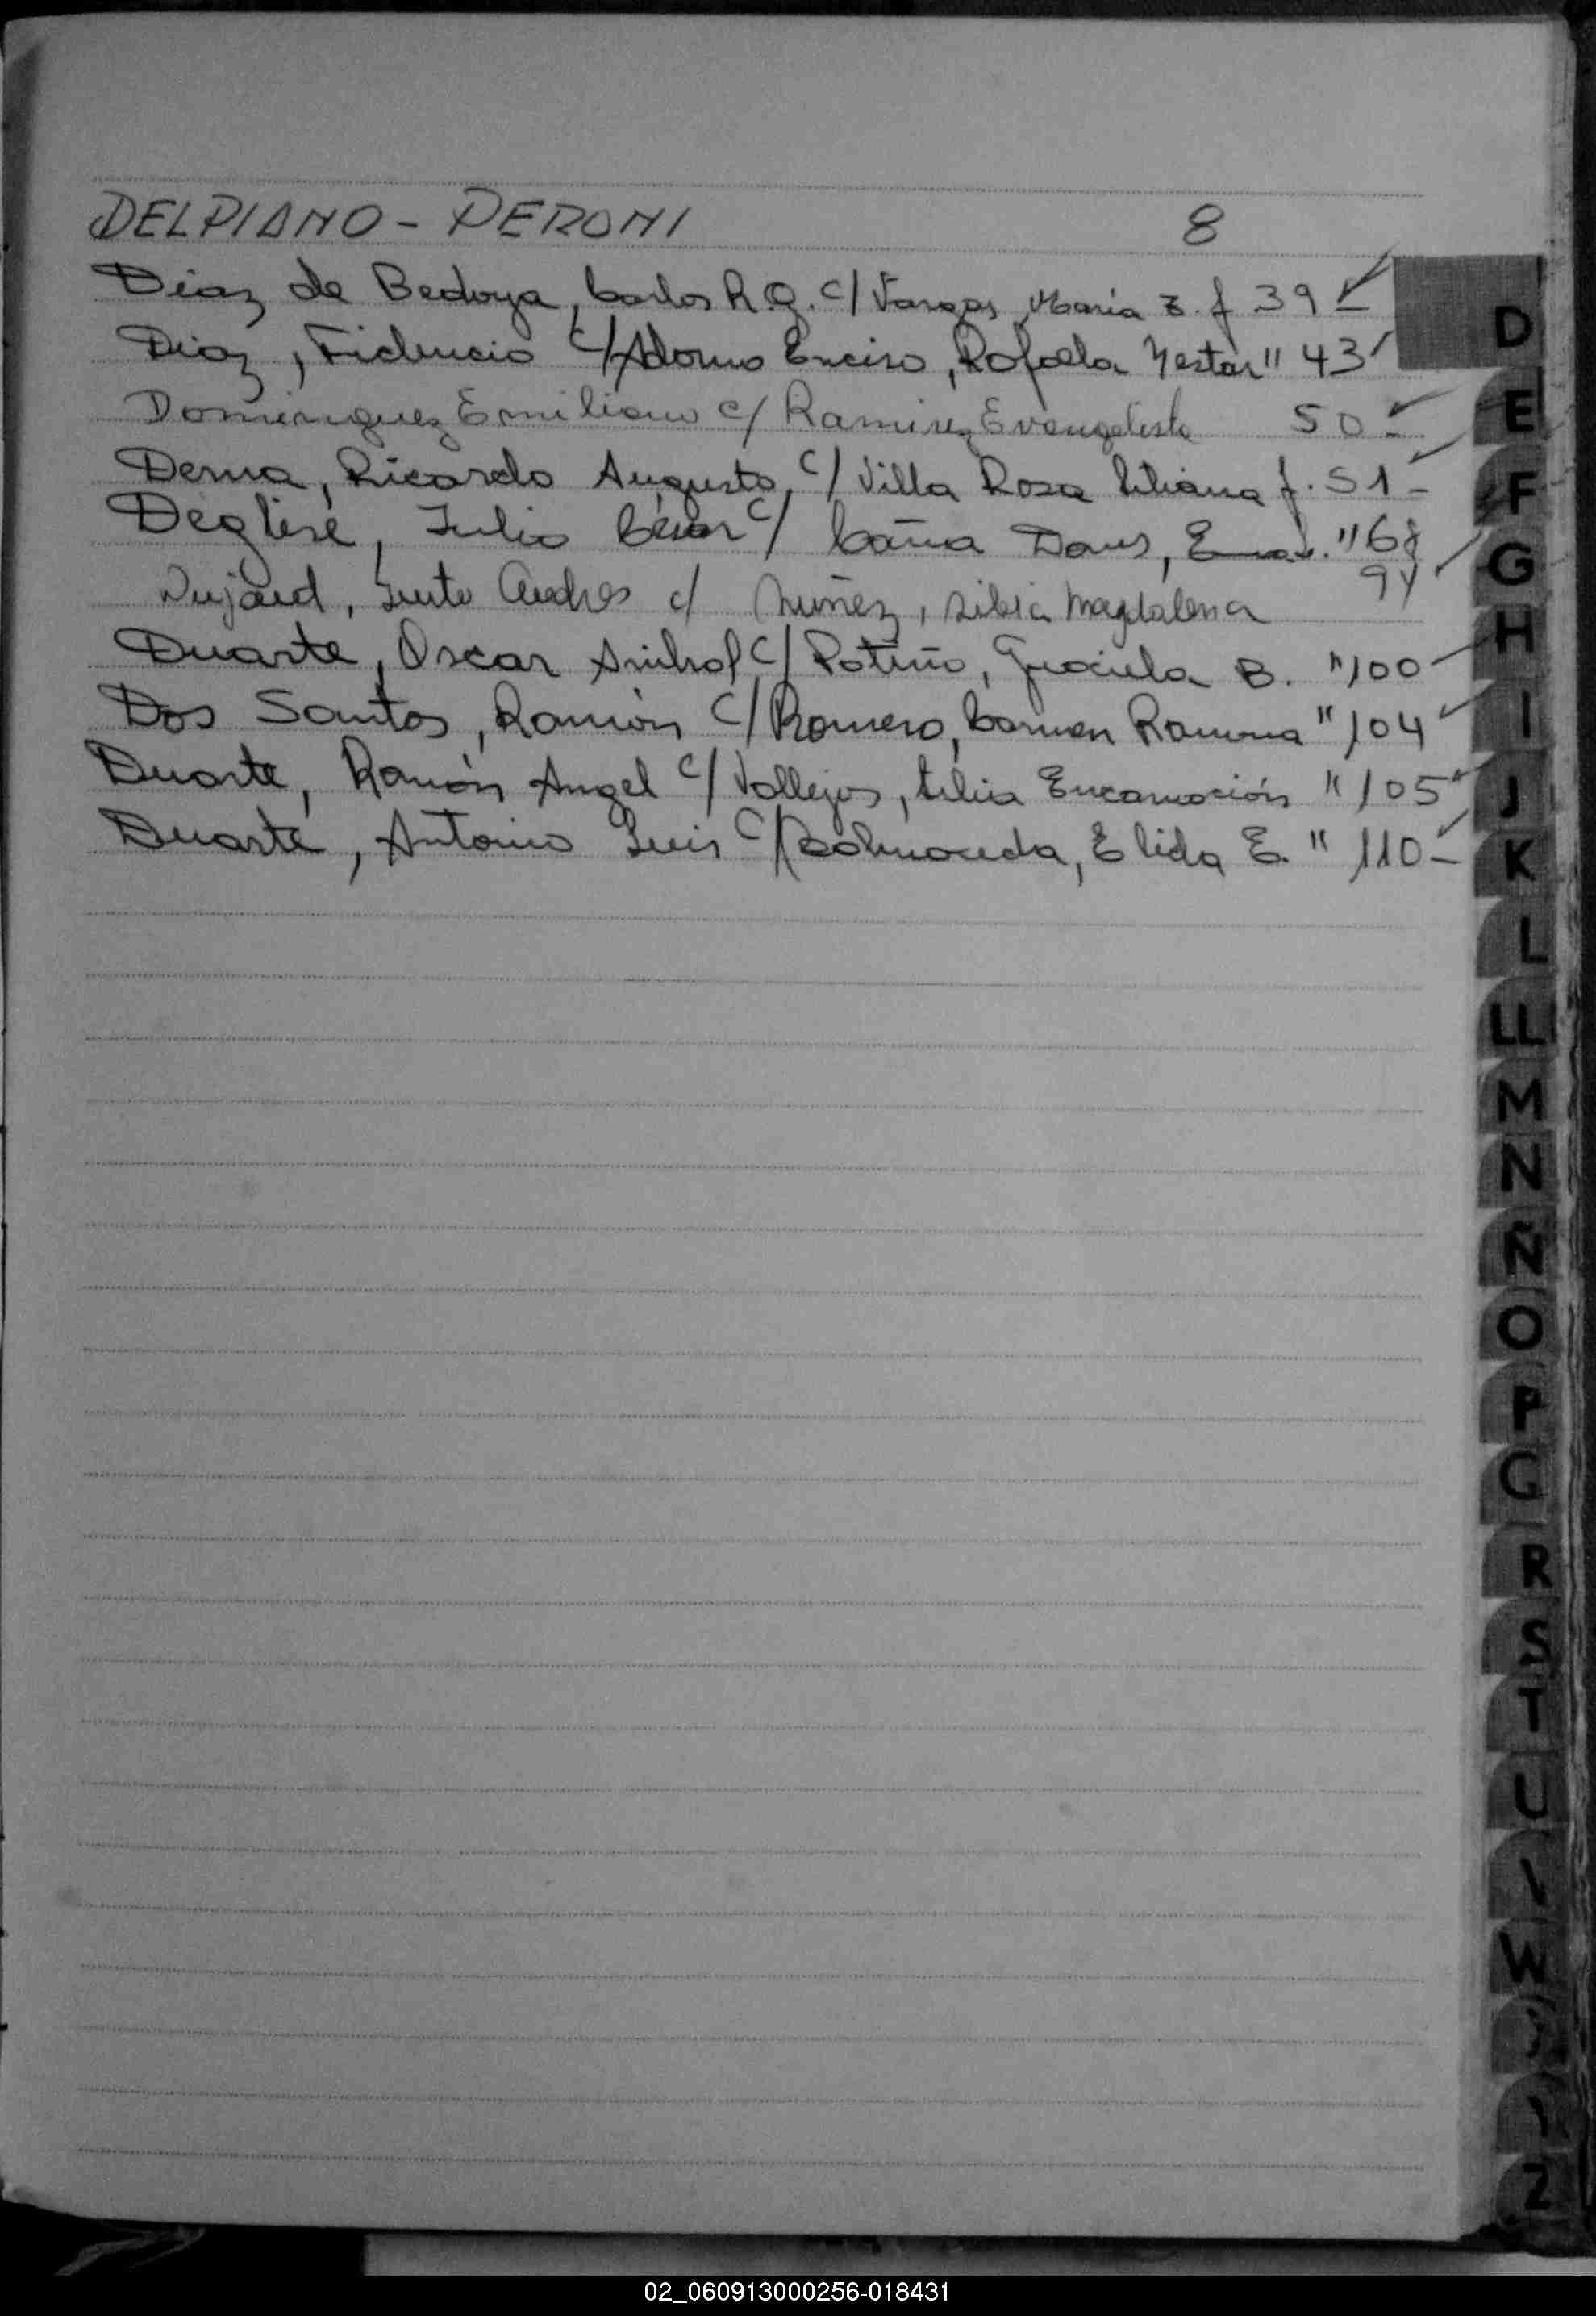 DELPIANO - PERONI 8
Diaz de Bedoya, Carlos R. G. c/ Vargas, María Z. f 39
Diaz, Fidencio c/ Adorno Enciso, Rafaela Nestar " 43
Dominguez Emiliano c/ Ramirez Evangelista 50
Derna, Ricardo Augusto, c/ Villa Rosa Liliana f. 51
Deglise, Julio César c/ Caña Daus, " 68
94
Dujard, Justo Andres c/ Nuñez, Silvia Magdalena
Duarte, Oscar Anibal c/ Patiño, Graciela B. " 100
Dos Santos, Ramón c/ Romero, Carmen Ramona " 104
Duarte, Ramón Angel c/ Vallejos, Lilia Encarnación " 105
Duarte, Antonio Luis c/ Balmaceda, Elida E. " 110
D
E
F
G
H
I
J
K
L
LL
M
N
Ñ
O
P
R
S
T
U
W
Z
02_060913000256-018431